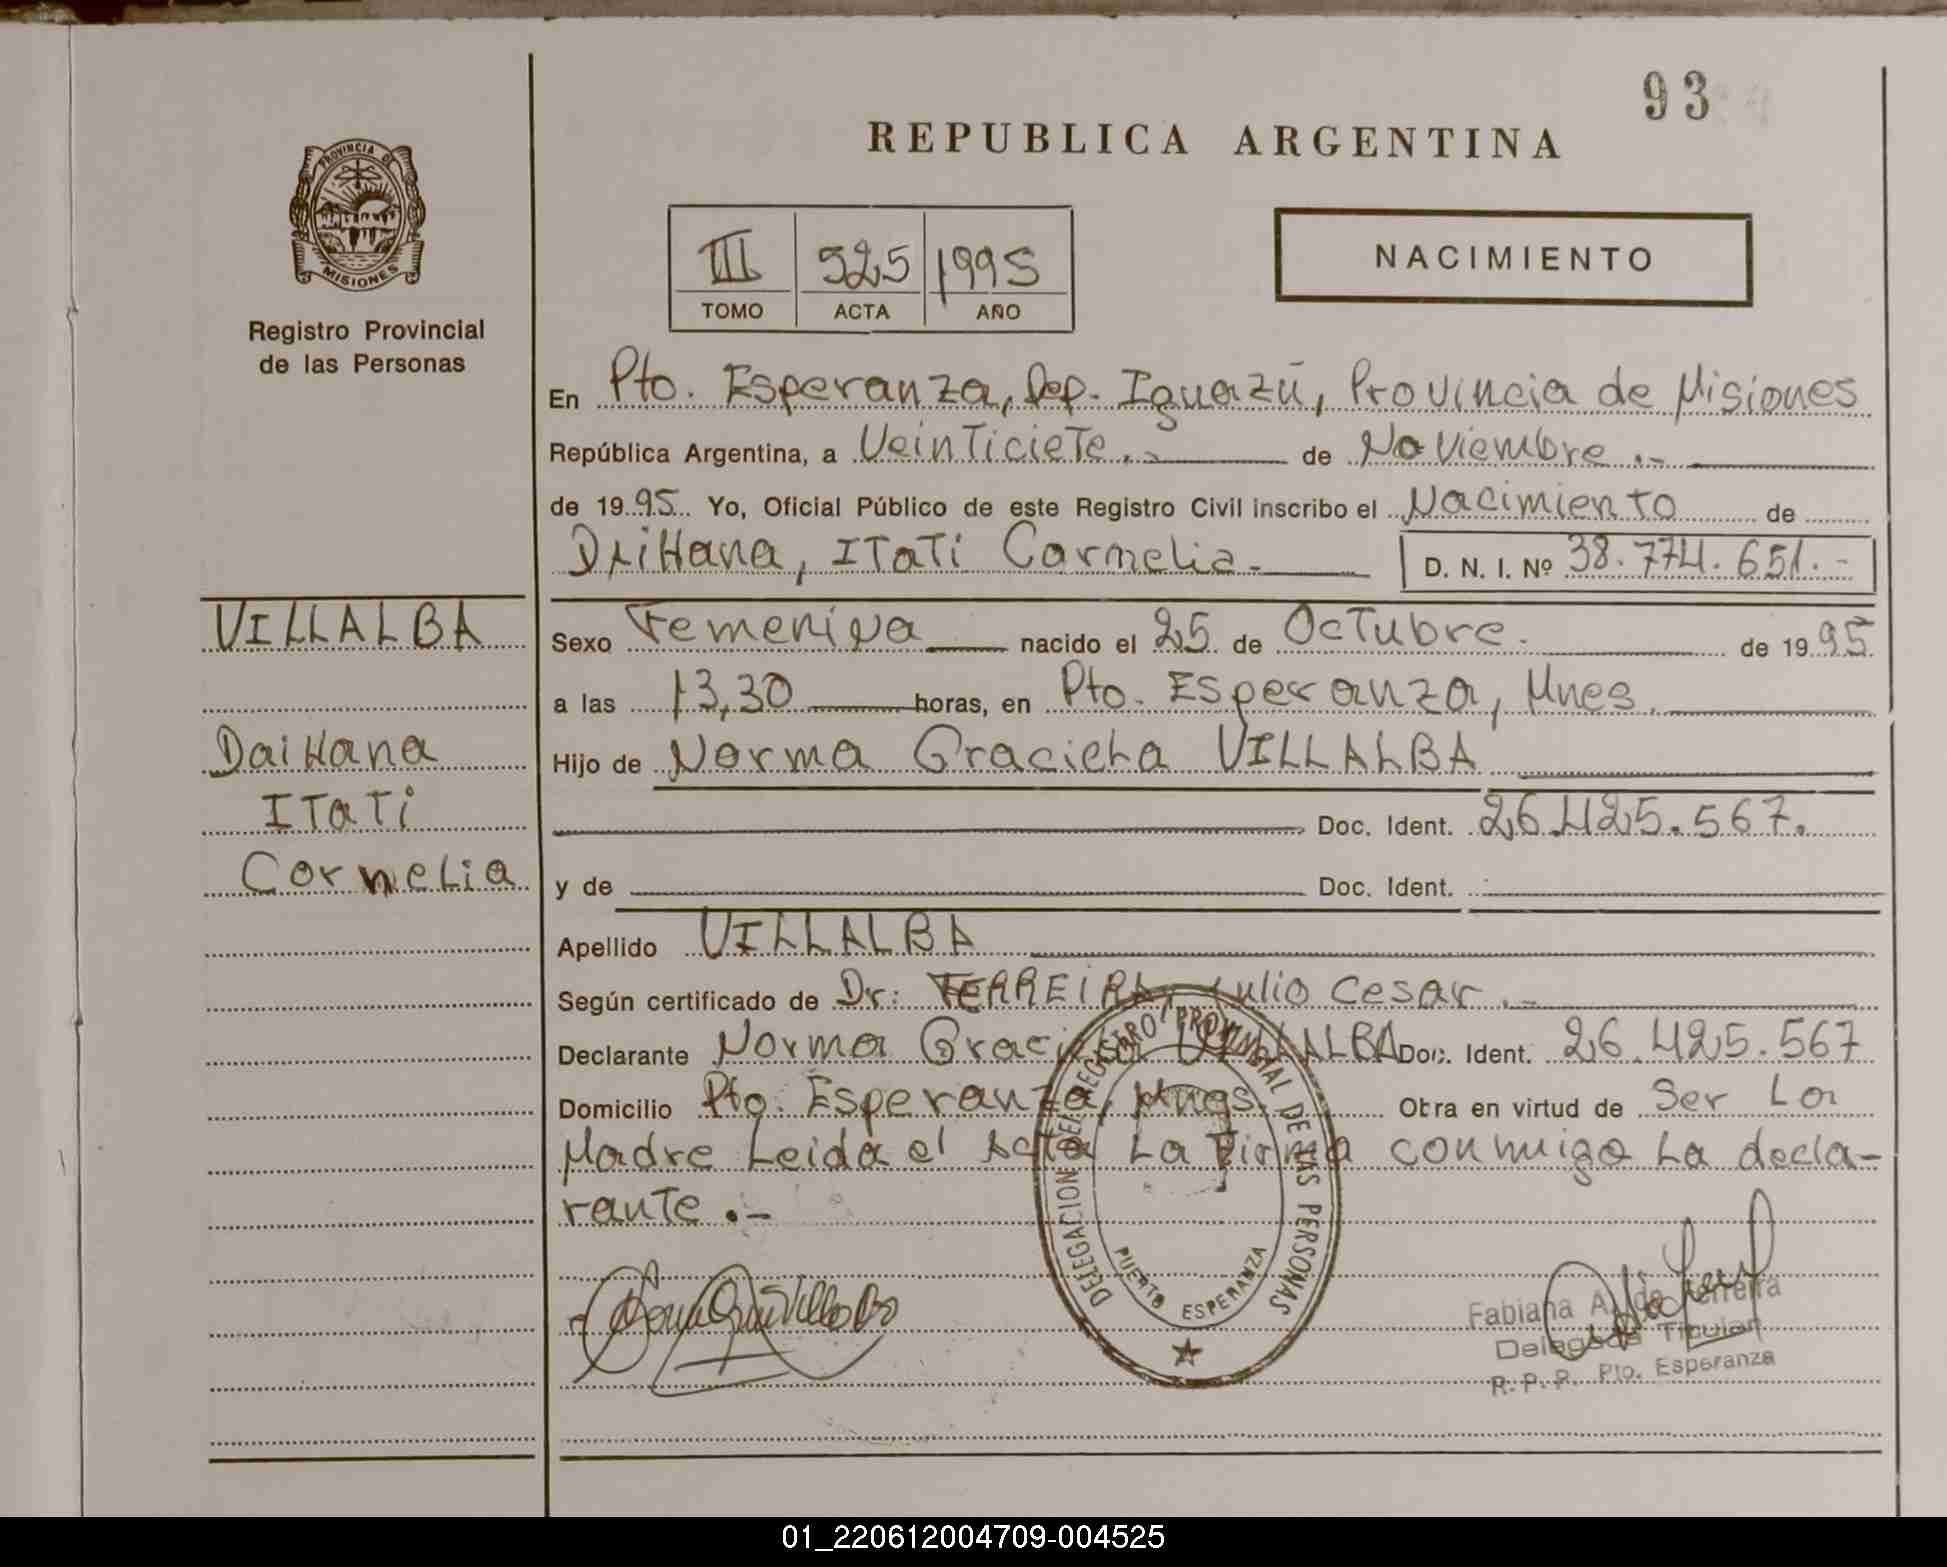 93
REPUBLICA ARGENTINA
PROVINCIA DE
MISIONES
Registro Provincial
de las Personas
III 525 1995
TOMO ACTA AÑO
NACIMIENTO
En Pto. Esperanza, Dep. Iguazú, Provincia de Misiones
República Argentina, a Veinticiete.- de Noviembre.-
de 1995 Yo, Oficial Público de este Registro Civil inscribo el Nacimiento de
DaiHana, Itati Carmelia.- D. N. I. Nº 38.774.651.-
VILLALBA
Sexo Femenina nacido el 25 de Octubre. de 1995
a las 13,30 horas, en Pto. Esperanza, Mnes.
DaiHana
Itati
Cornelia
Hijo de Norma Graciela VILLALBA
Doc. Ident. 26.425.567.
y de Doc. Ident.
Apellido VILLALBA
Según certificado de Dr: FERREIRA, Julio Cesar.-
Declarante Norma Graciela VILLALBA Doc. Ident. 26.425.567
Domicilio Pto. Esperanza, Mnes. Obra en virtud de Ser La
Madre Leida el Acta La Firma conmigo La decla-
rante.-
DELEGACION DEL REGISTRO PROVINCIAL DE LAS PERSONAS
PUERTO ESPERANZA
Fabiana A. de Ferreira
Delegada Titular
R. P. P. Pto. Esperanza
01_220612004709-004525